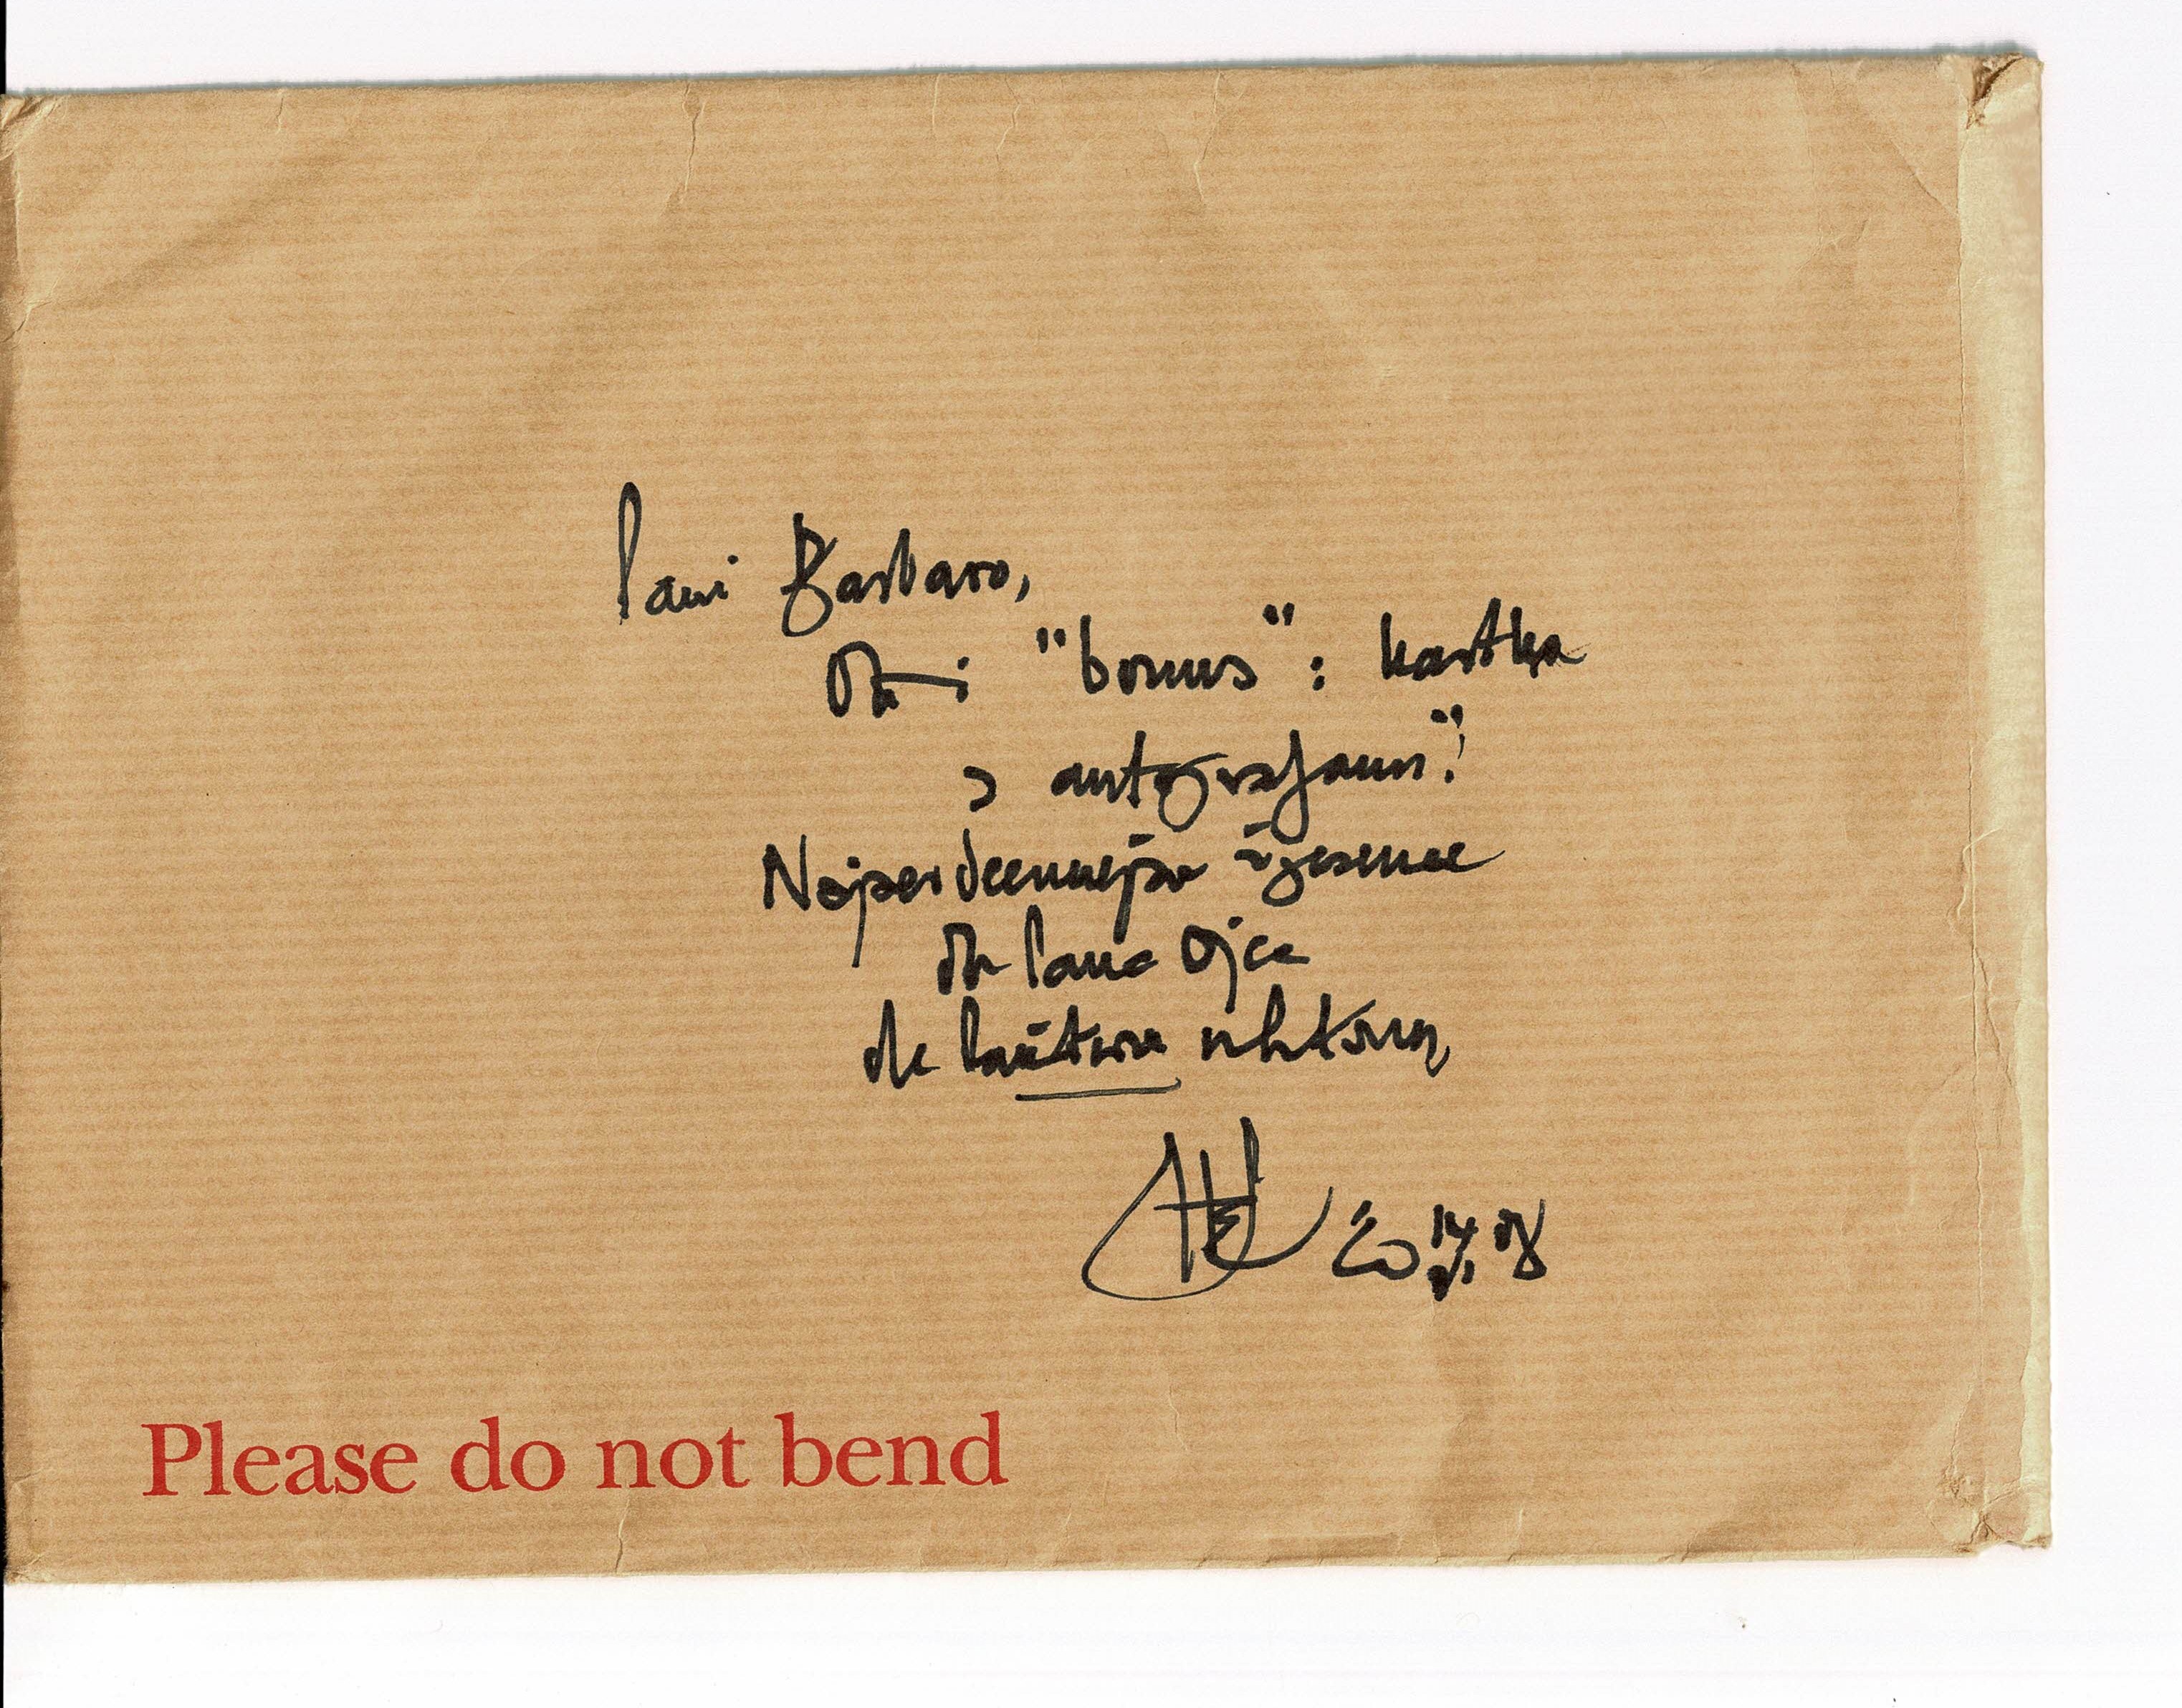 Pani Barbaro,
Oto i "bonus": kartka
z autografami!
Najserdeczniejsze życzenia
dla Pana Ojca
dla Państwa
14 VI 08
Please do not bend